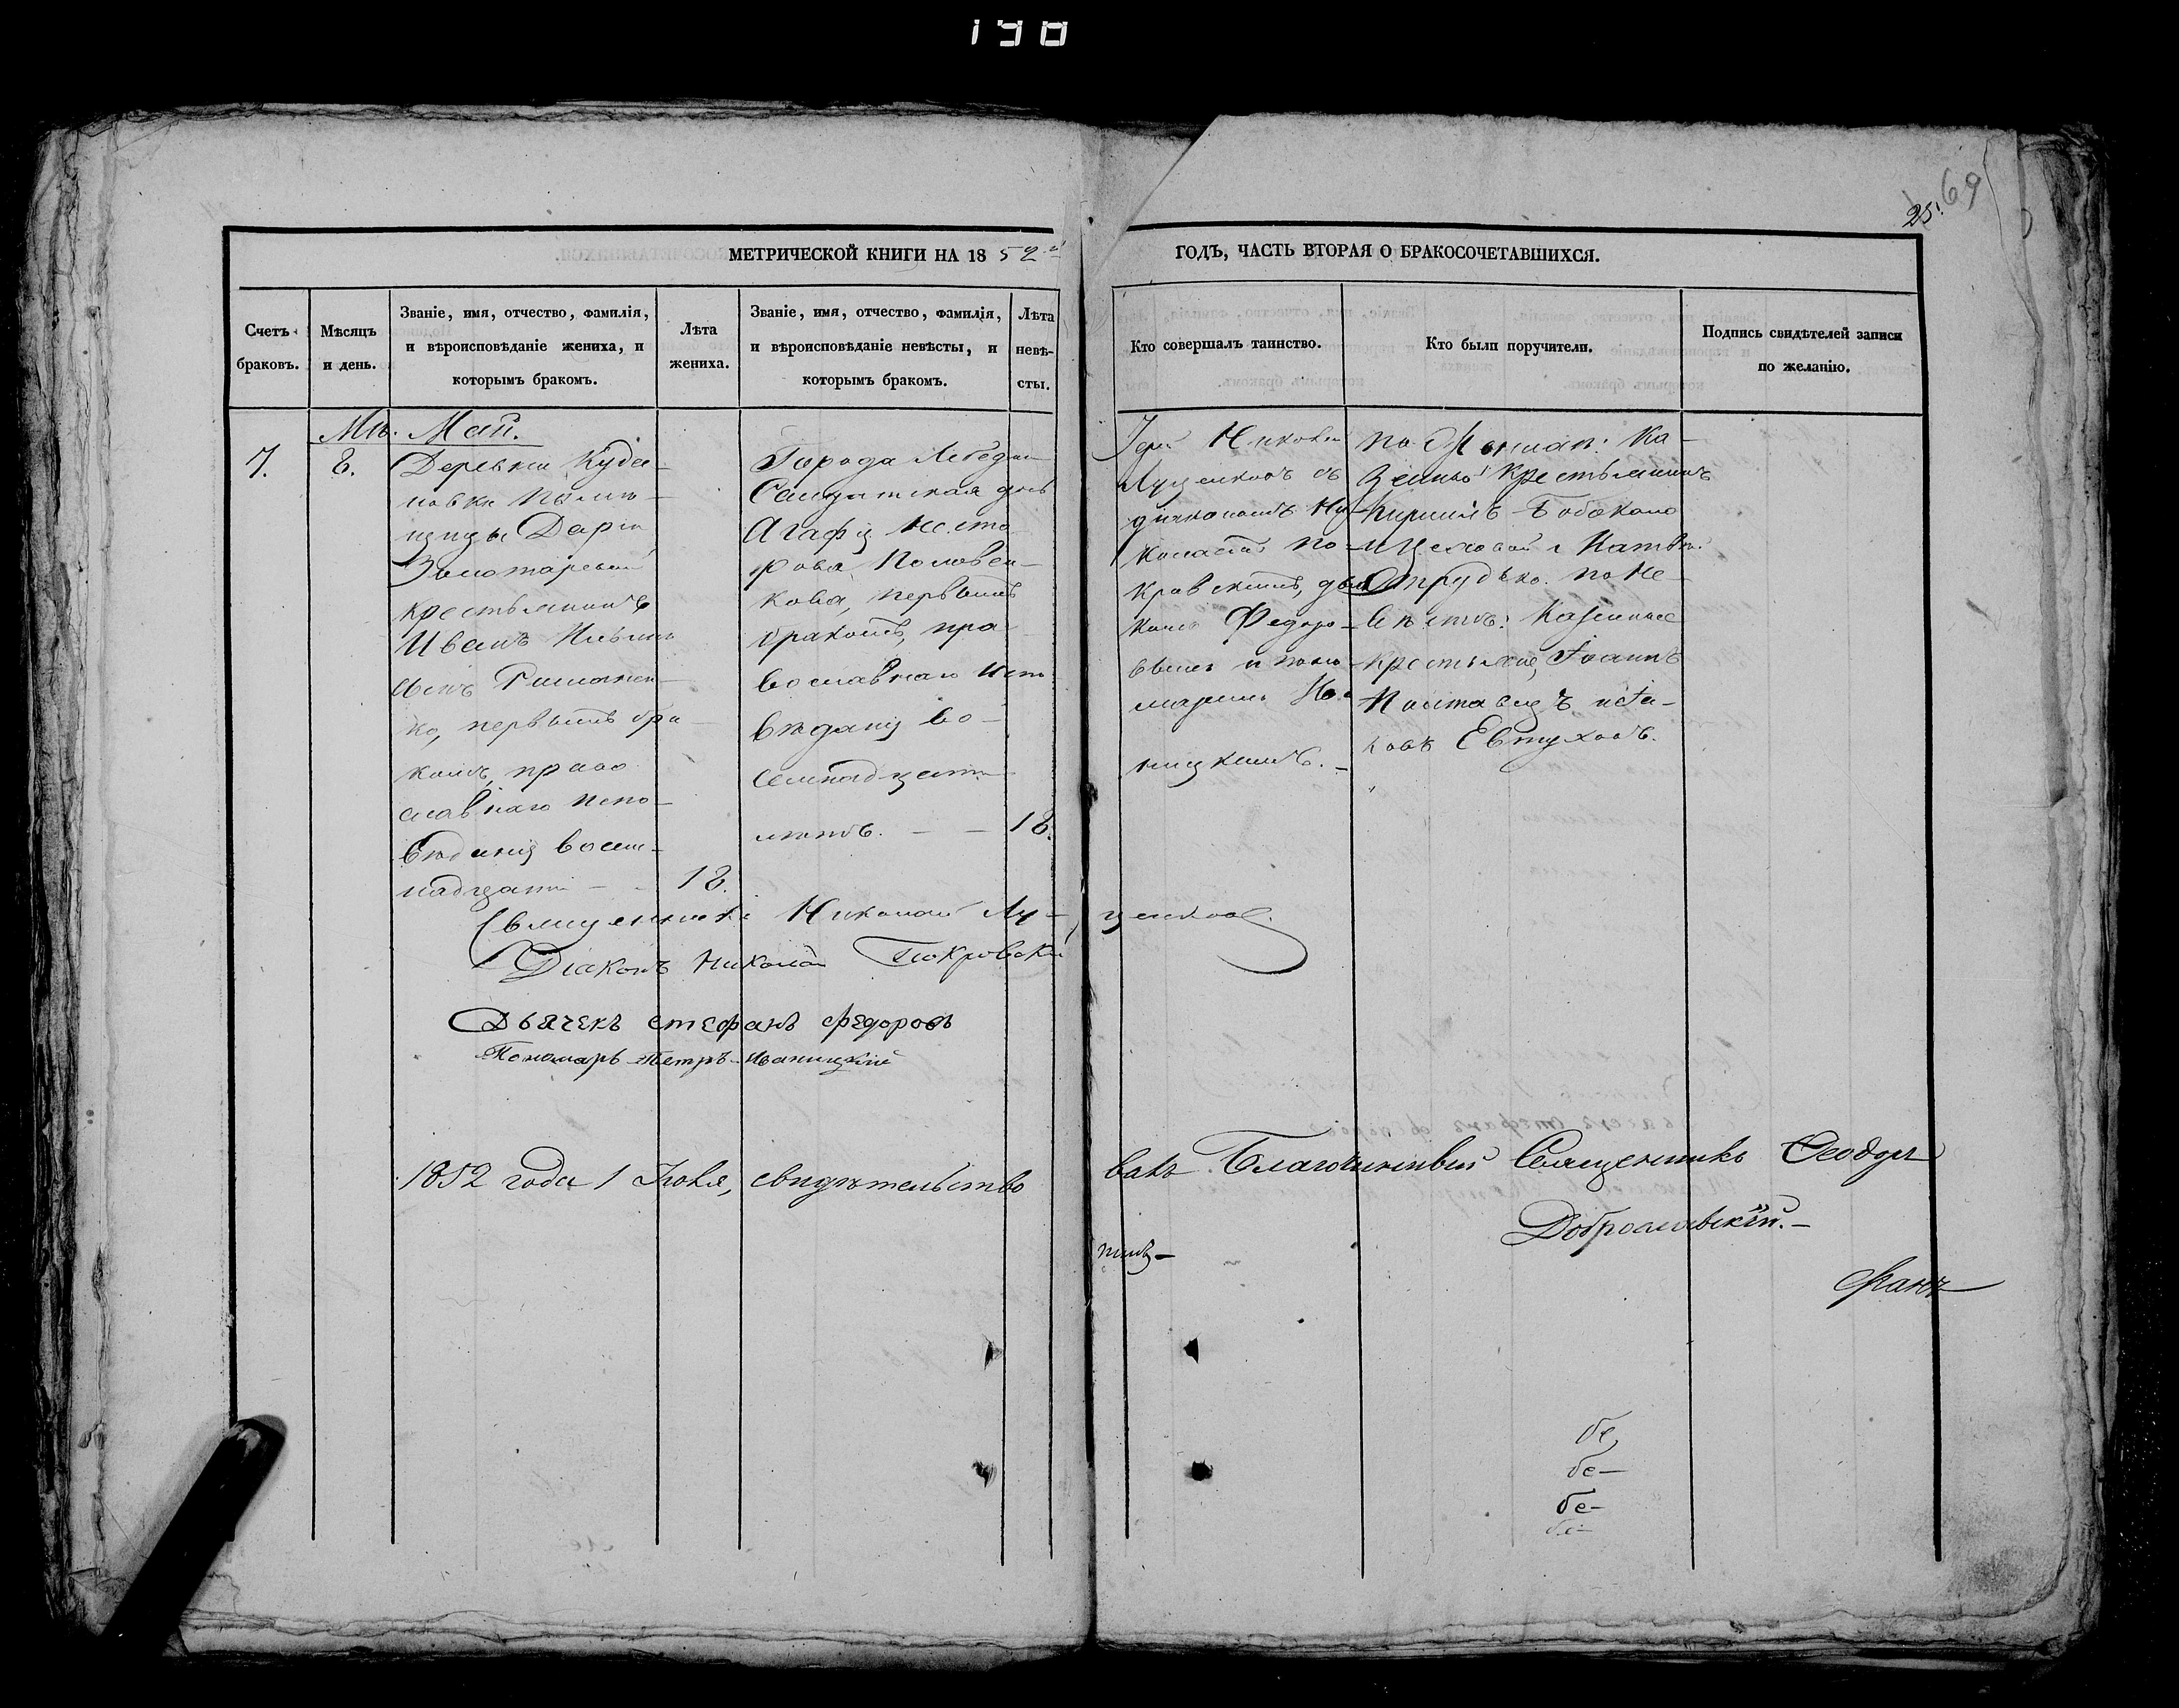 198
25. 69
МЕТРИЧЕСКОЙ КНИГИ НА 1852й
ГОДЪ, ЧАСТЬ ВТОРАЯ О БРАКОСОЧЕТАВШИХСЯ.
Счетъ браковъ.
Мѣсяцъ и день.
Званіе, имя, отчество, фамилія,
и вѣроисповѣданіе жениха, и
которымъ бракомъ.
Лѣта
жениха.
Званіе, имя, отчество, фамилія,
и вѣроисповѣданіе невѣсты, и
которымъ бракомъ.
Лѣта
невѣ-
сты.
Кто совершалъ таинство.
Кто были поручители.
Подпись свидѣтелей записи
по желанію.
Мц. Май.
7.
8.
Деревни Куда-
новки помѣ-
щицы Даріи
Золотаревой
крестьянинъ
Иванъ Ильинъ
сынъ
ко, первымъ бра-
комъ, право
славнаго испо-
вѣданія восем-
надцати - - 18.
Города Лебедина
Солдатская дочь
Агафія Несто
рова Половен-
кова, первымъ
бракомъ, пра-
вославнаго испо
вѣданія во-
семнадцати
лѣтъ. - - 18.
Іерей Николай
Луценковъ съ
діякономъ Ни-
колаемъ По-
кровскимъ, дья
комъ Федоро-
вымъ и поно
маремъ Ива
ницкимъ. -
по Женихѣ: Ка-
зенный крестьянинъ
Кириллъ
и Матвѣй
Отрудько. по Не-
вѣстѣ: Казенные
крестьяне, Іоаннъ
Полтавецъ и Яа-
ковъ Евтуховъ.
Священникъ Николай Лу-ценковъ
Діаконъ Николай Покровскій
Дьячекъ Стефанъ Федоровъ
Пономарь Петръ Иваницкій
1852 года 1 Іюня, свидѣтельство
валъ Благочинный Священникъ Феодоръ
Доброславскій. -
бе,
бе-
бе-
бе-